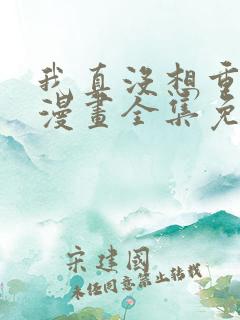 我真没想重
漫畫全集免
宋建國
未经同意禁止转载